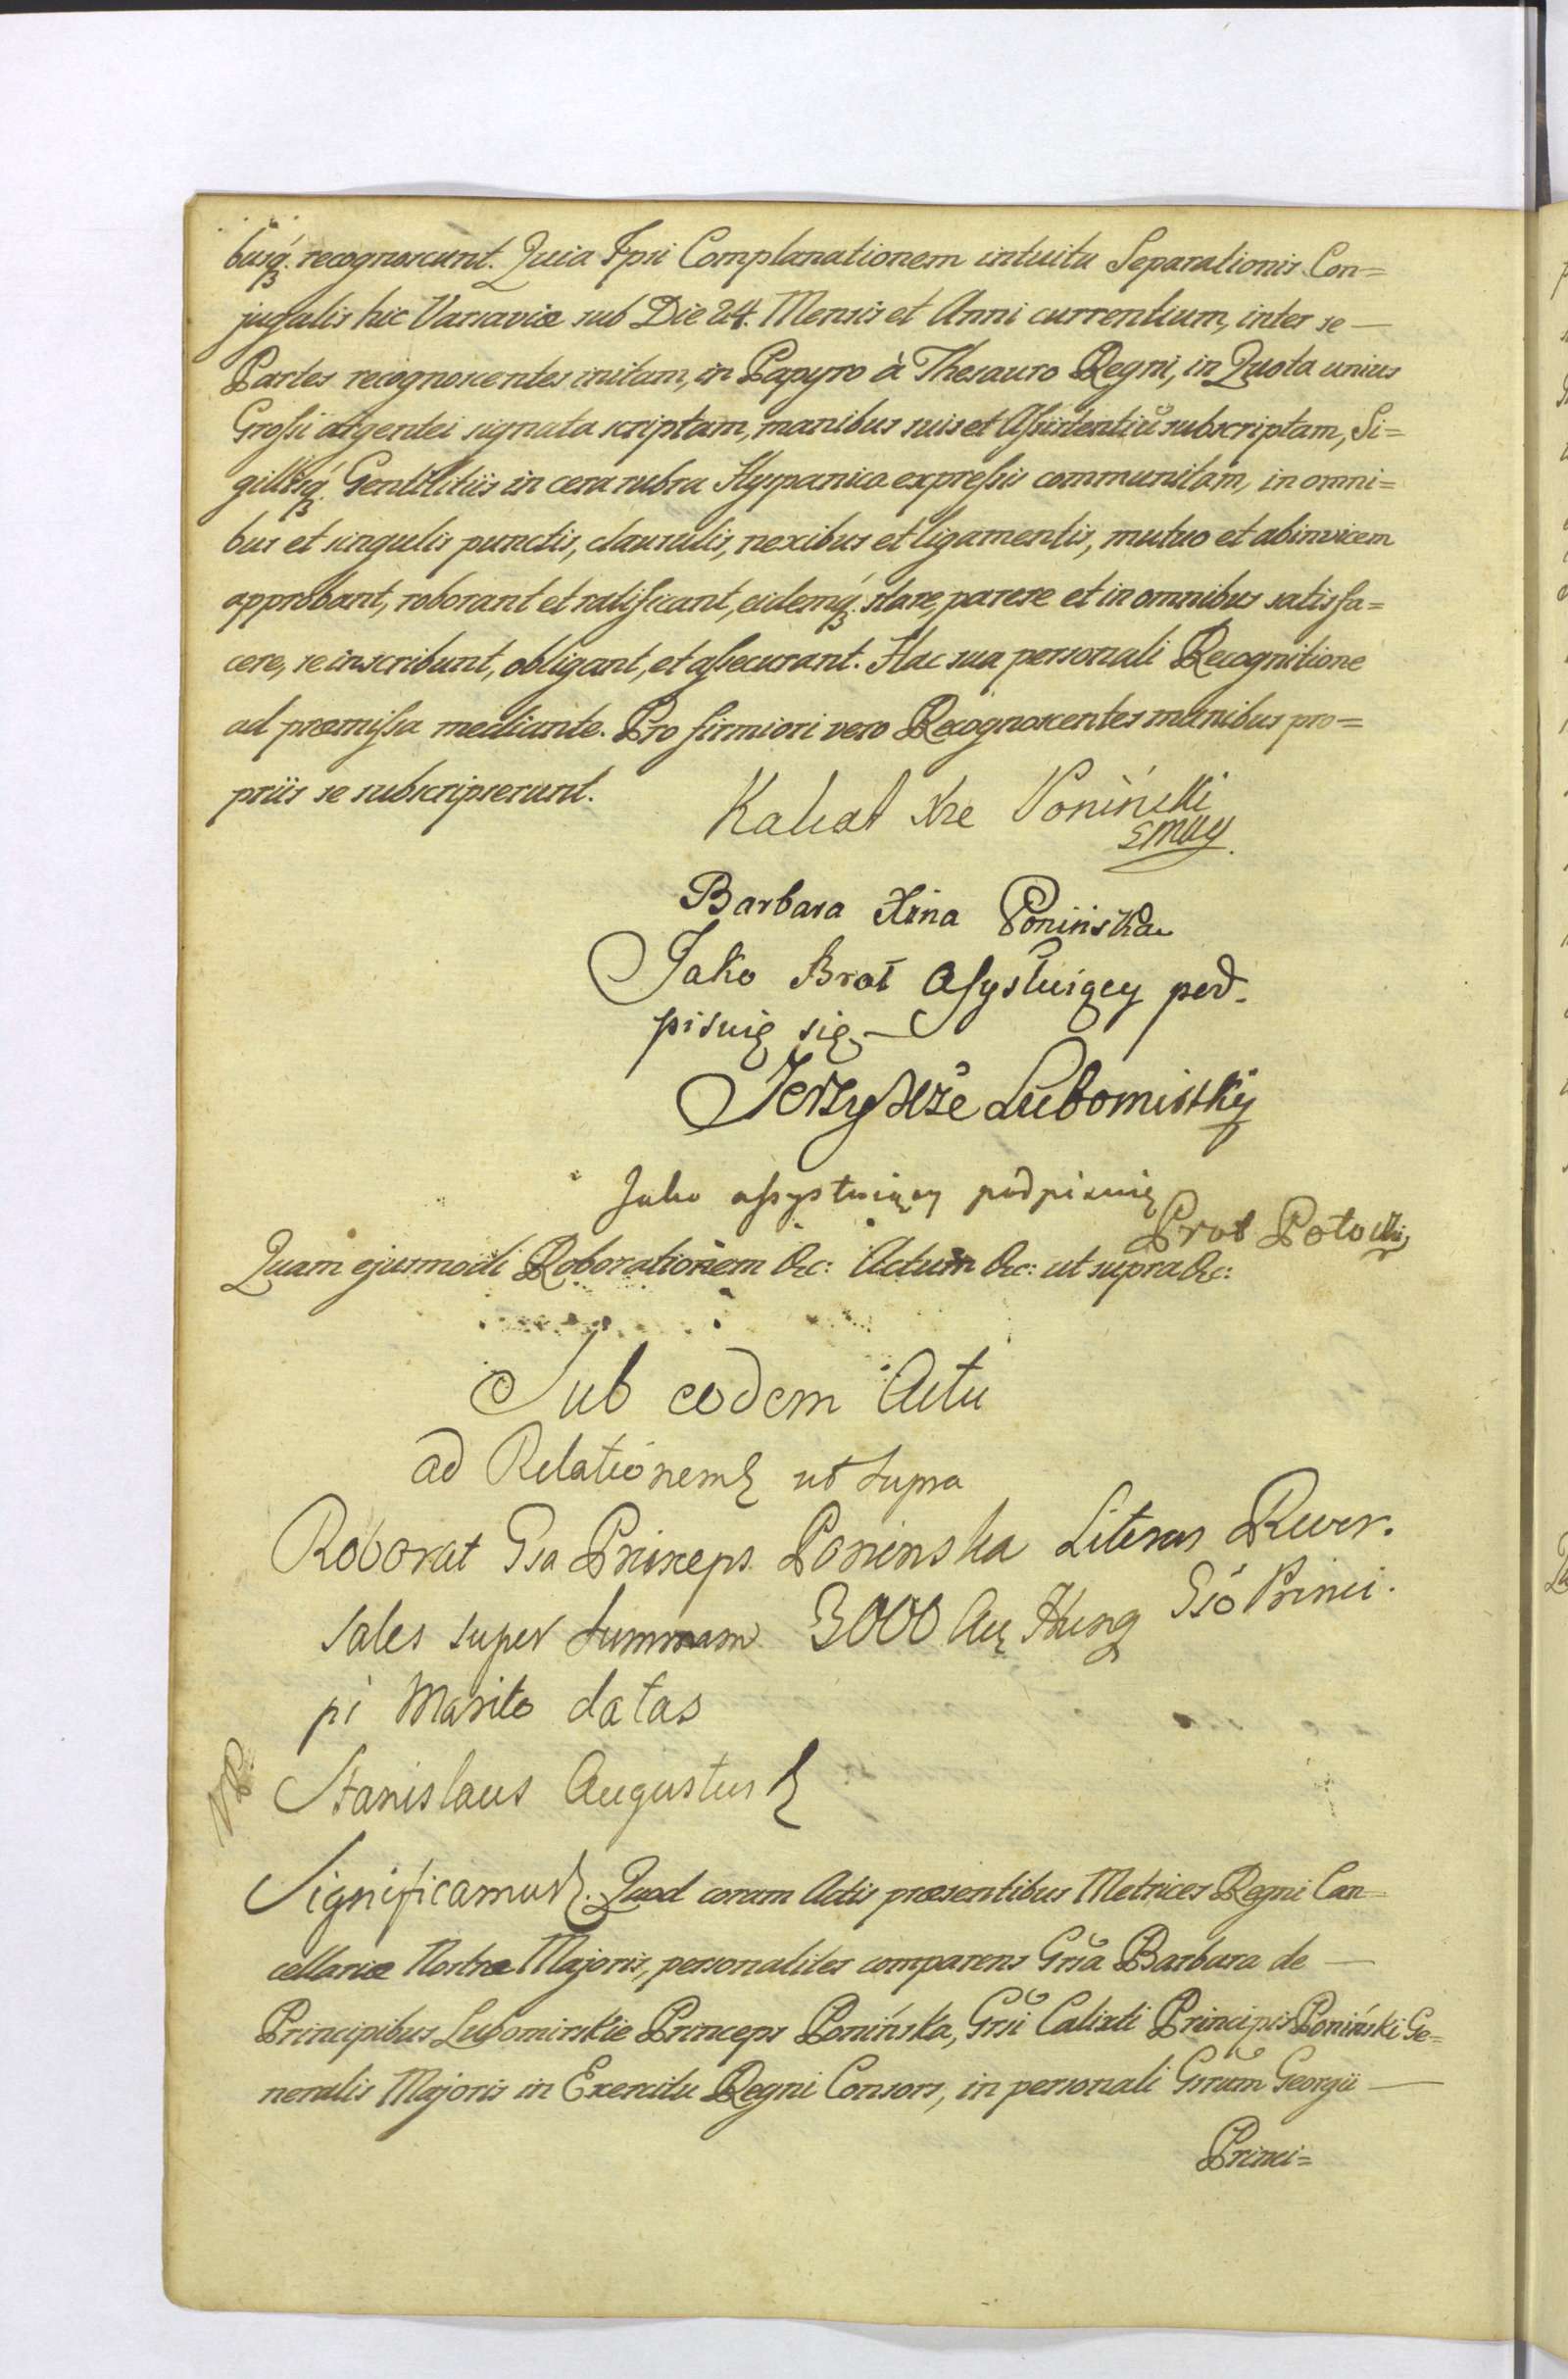 busq́. recognoscunt. Quia Ipsi Complanationem intuitu Separationis Con=
jugalis hic Varsaviæ sub Die 24. Mensis et Anni currentium, inter se —
Partes recognoscentes initam, in Papyro à Thesauro Regni, in Quota unius
Grossi argentei signata scriptam, manibus suis et Assistentiũ subscriptam, Si=
gillisq́. Gentilitiis in cera rubra Hyspanica expressis communitam, in omni=
bus et singulis punctis, clausulis, nexibus et ligamentis, mutuo et abinvicem
approbant, roborant et ratificant, eidemq́. stare, parere et in omnibus satisfa=
cere, se inscribunt, obligant, et assecurant. Hac sua personali Recognitione
ad præmissa mediante. Pro firmiori vero Recognoscentes manibus pro=
priis se subscripserunt.
Kalixt Xze Poniński
Barbara Xzna Ponińska
Jako Brat Assystuiący pod-
pisuię się —
Jerzy Xże Lubomirsky
Jako assystuiący podpisuię
Prot Potocki
Quam ejusmodi Roborationem &c: Actum &c: ut supra &c:
Sub eodem Actu
ad Relationem ut supra
Roborat Gsa Princeps Poninska Literas Rever.
sales super Summam 3000 Au Hung Gsō Princi.
pi Marito datas
NB.
Stanislaus Augustus
Significamus. Quod coram Actis præsentibus Metrices Regni Can=
cellariæ Nostræ Majoris, personaliter comparens Grsa Barbara de —
Principibus Lubomirskie Princeps Ponińska, Grsi Calixti Principis Poniński Ge=
neralis Majoris in Exercitu Regni Consors, in personali Grsum Georgii —
Princi=